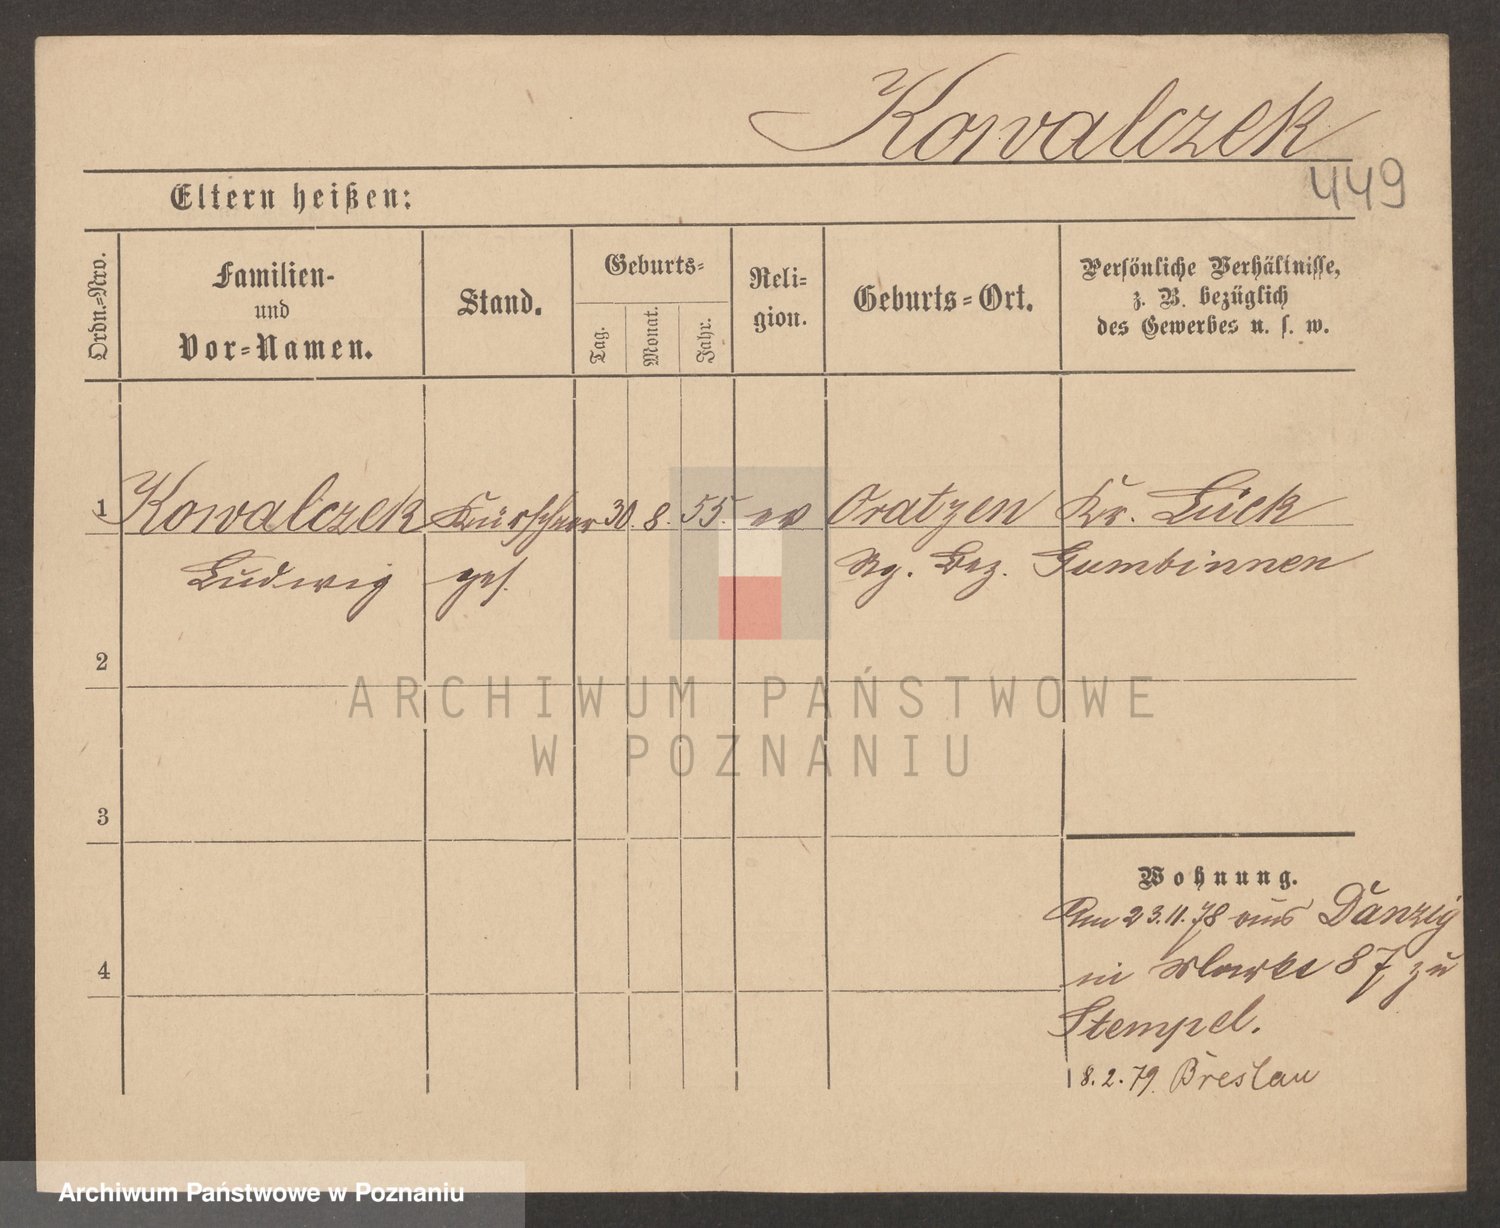 Kowalczek
449
Eltern heißen:
Ordn.-Nro.
Familien-
und
Vor-Namen.
Stand.
Geburts-
Tag.
Monat.
Jahr.
Reli-
gion.
Geburts-Ort.
Persönliche Verhältnisse,
z. B. bezüglich
des Gewerbes u. s. w.
1 Kowalczek Kürschner 30. 8. 55. ev Oratzen Kr. Lück
Ludwig ges. Rg. Bez. Gumbinnen
2
3
4
Wohnung.
Am 23.11.78 aus Danzig
in Markt 87 zu
Stempel.
8.2.79. Breslau
ARCHIWUM PAŃSTWOWE
W POZNANIU
Archiwum Państwowe w Poznaniu